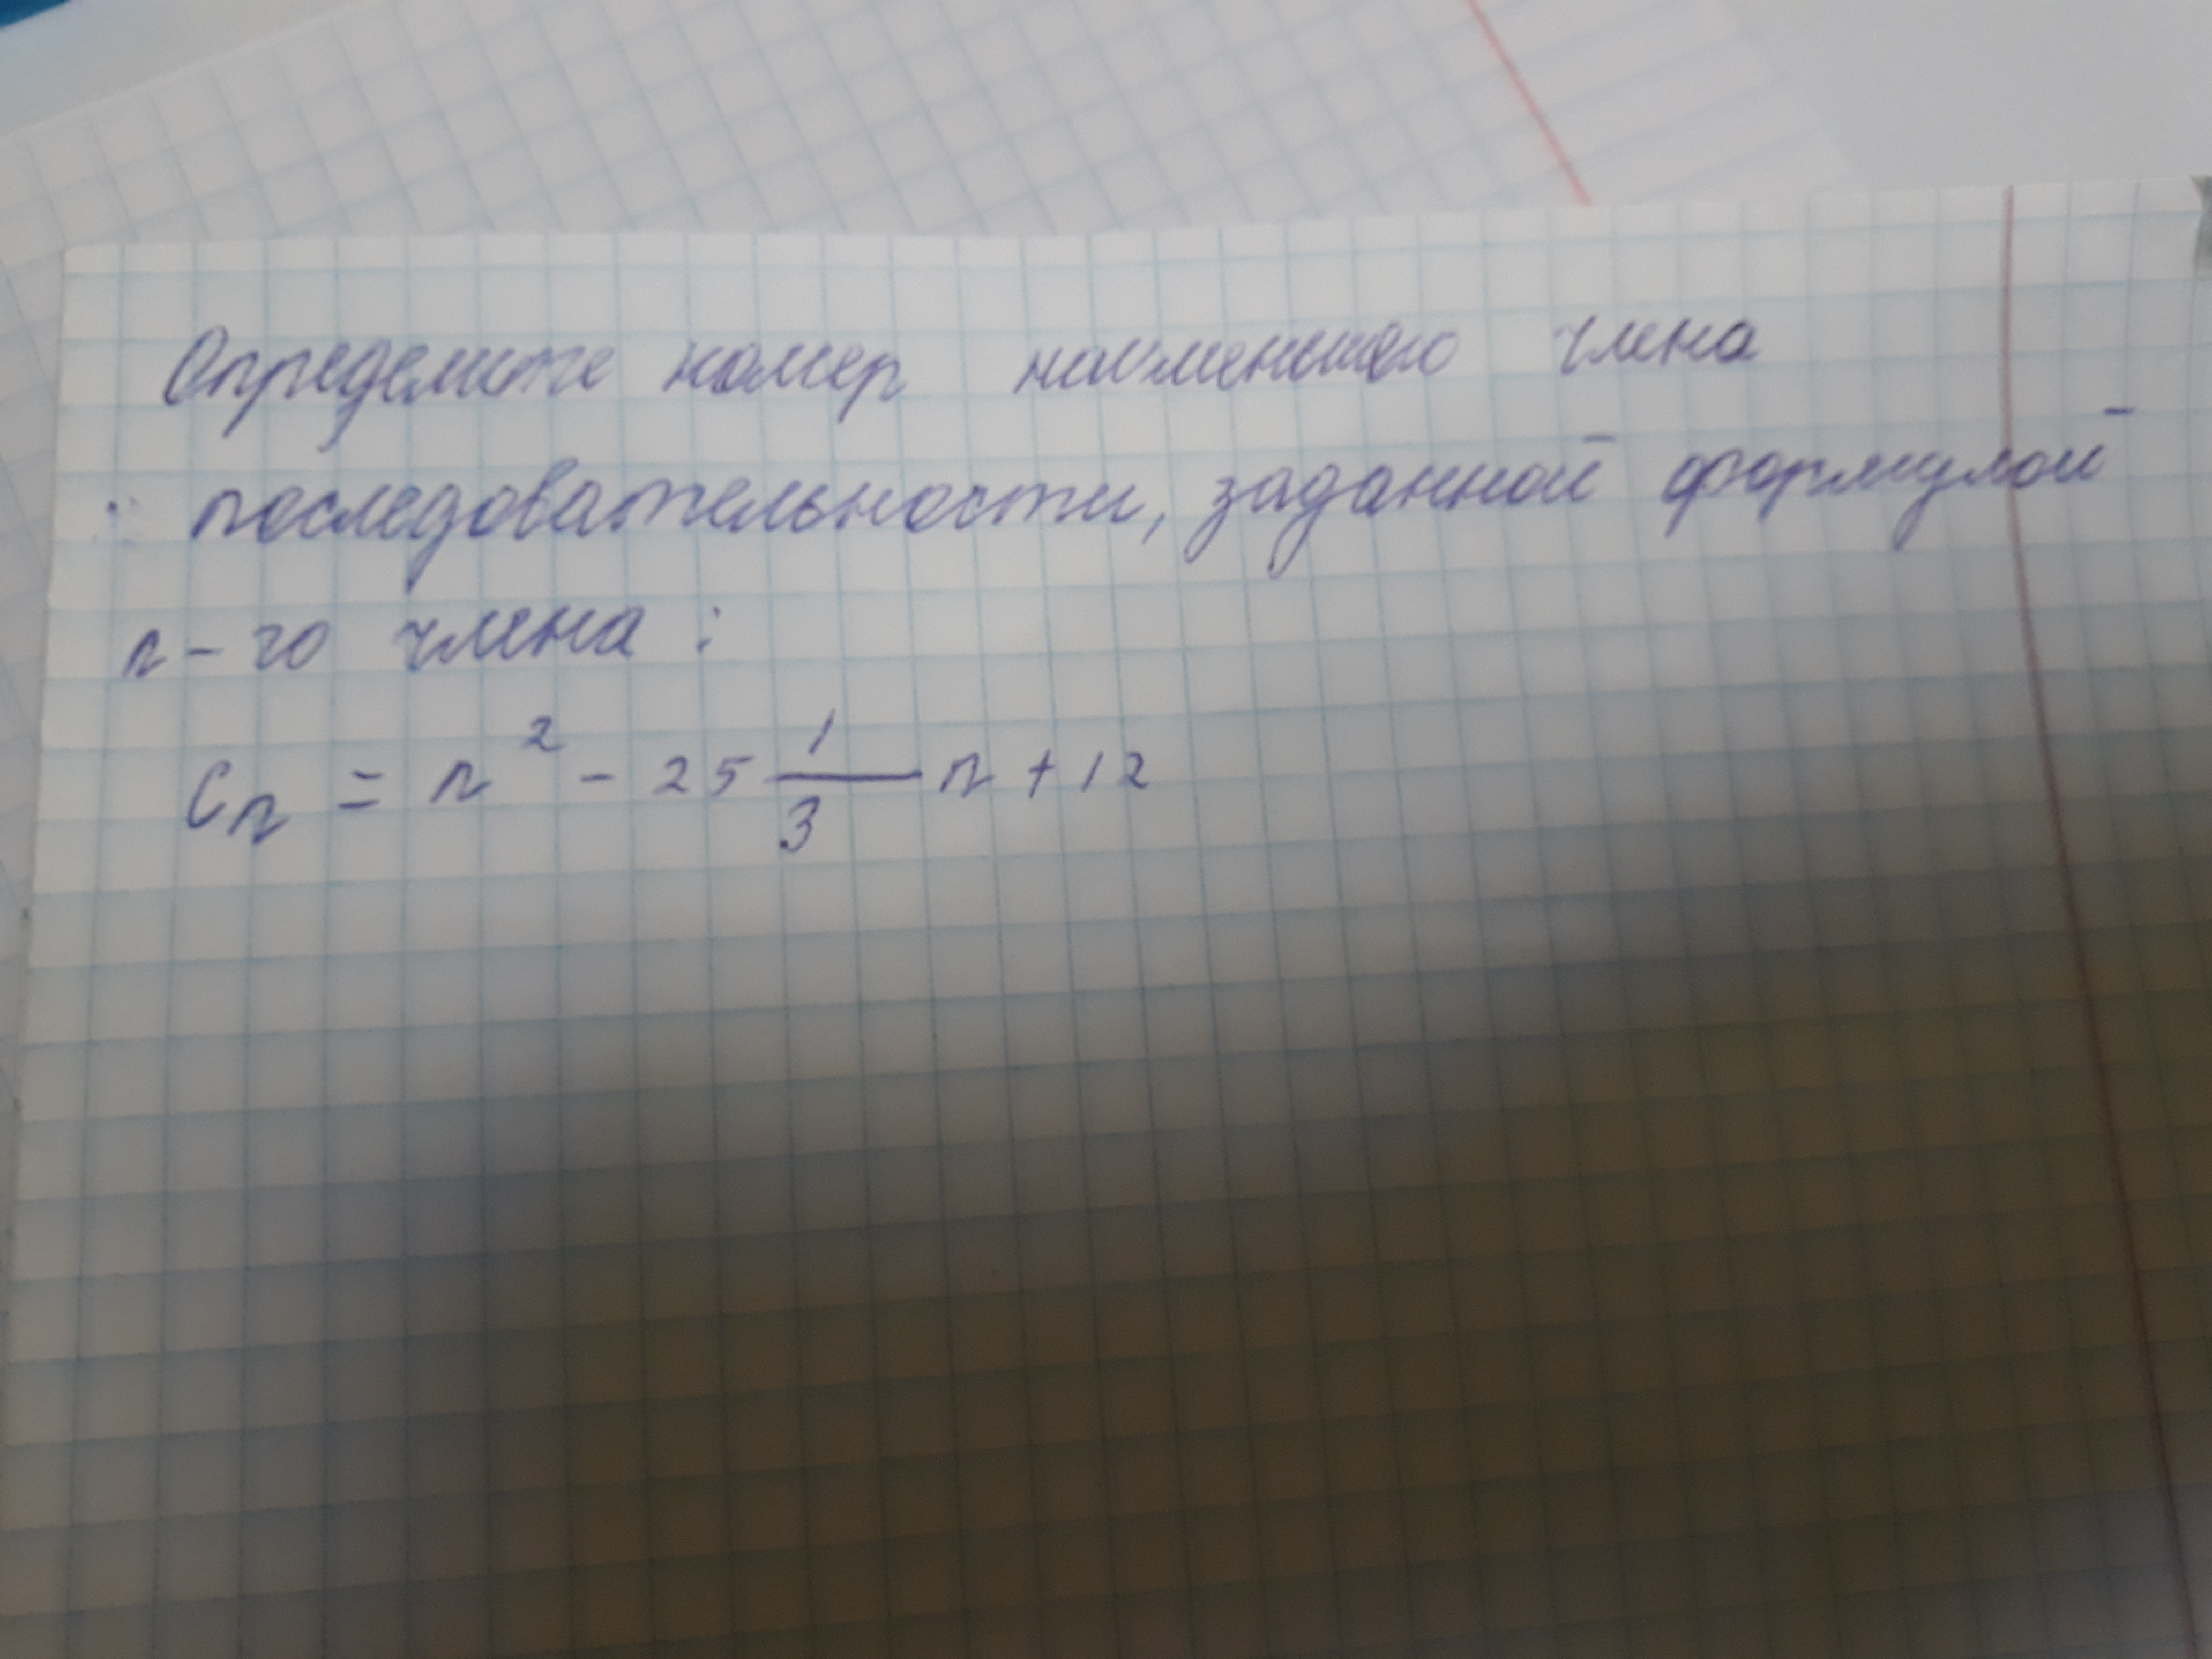 Определите номер наименьшего члена
последовательности, заданной формулой
n-го члена:
Cn = n² - 25 1/3 n + 12